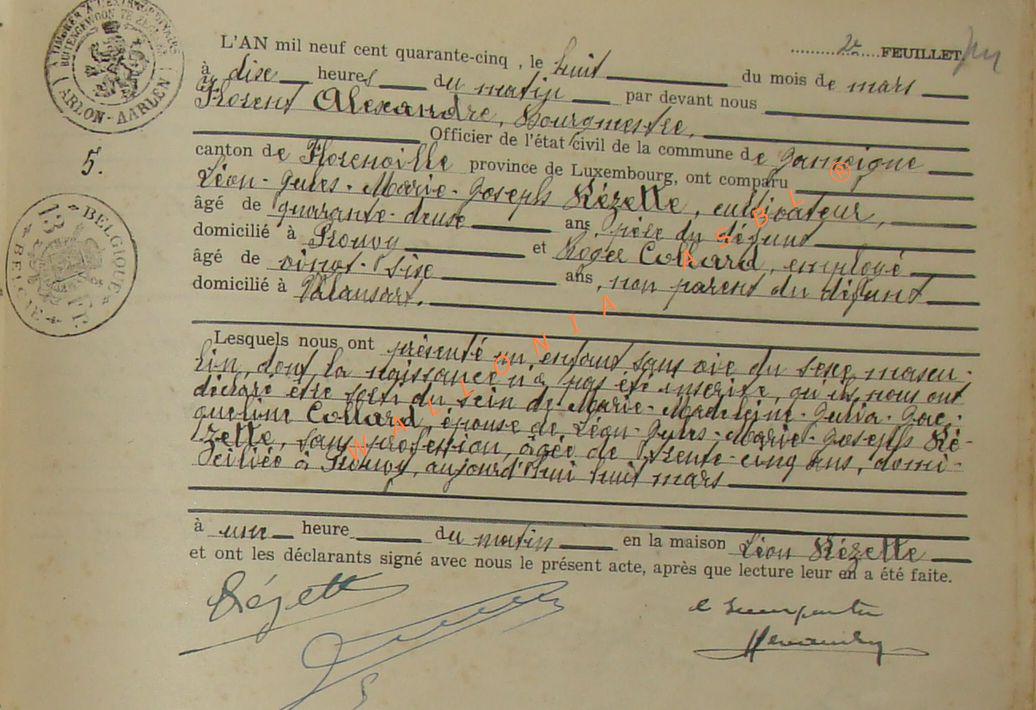 2e FEUILLET
L'AN mil neuf cent quarante-cinq , le huit du mois de mars
à dix heures du matin par devant nous
Florent Alexandre, Bourgmestre,
Officier de l'état civil de la commune de Jamoigne
canton de Florenville province de Luxembourg, ont comparu
Léon-Jules-Marie-Joseph Rézette, cultivateur,
âgé de quarante-deux ans, père du défunt
domicilié à Prouvy et Roger Collard, employé
âgé de vingt-six ans, non parent du défunt
domicilié à Valansart.
Lesquels nous ont présenté un enfant sans vie du sexe mascu-
lin, dont la naissance n'a pas été inscrite, qu'ils nous ont
déclaré être sorti du sein de Marie-Madeleine-Julia-Jac-
queline Collard, épouse de Léon-Jules-Marie-Joseph Ré-
zette, sans profession, âgée de trente-cinq ans, domi-
ciliée à Prouvy, aujourd'hui huit mars
à une heure du matin en la maison Léon Rézette
et ont les déclarants signé avec nous le présent acte, après que lecture leur en a été faite.
Rézette
le bourgmestre
5.
ARLON-AARLEN
BELGIQUE
BELGIE
WALLONIA ASBL ®